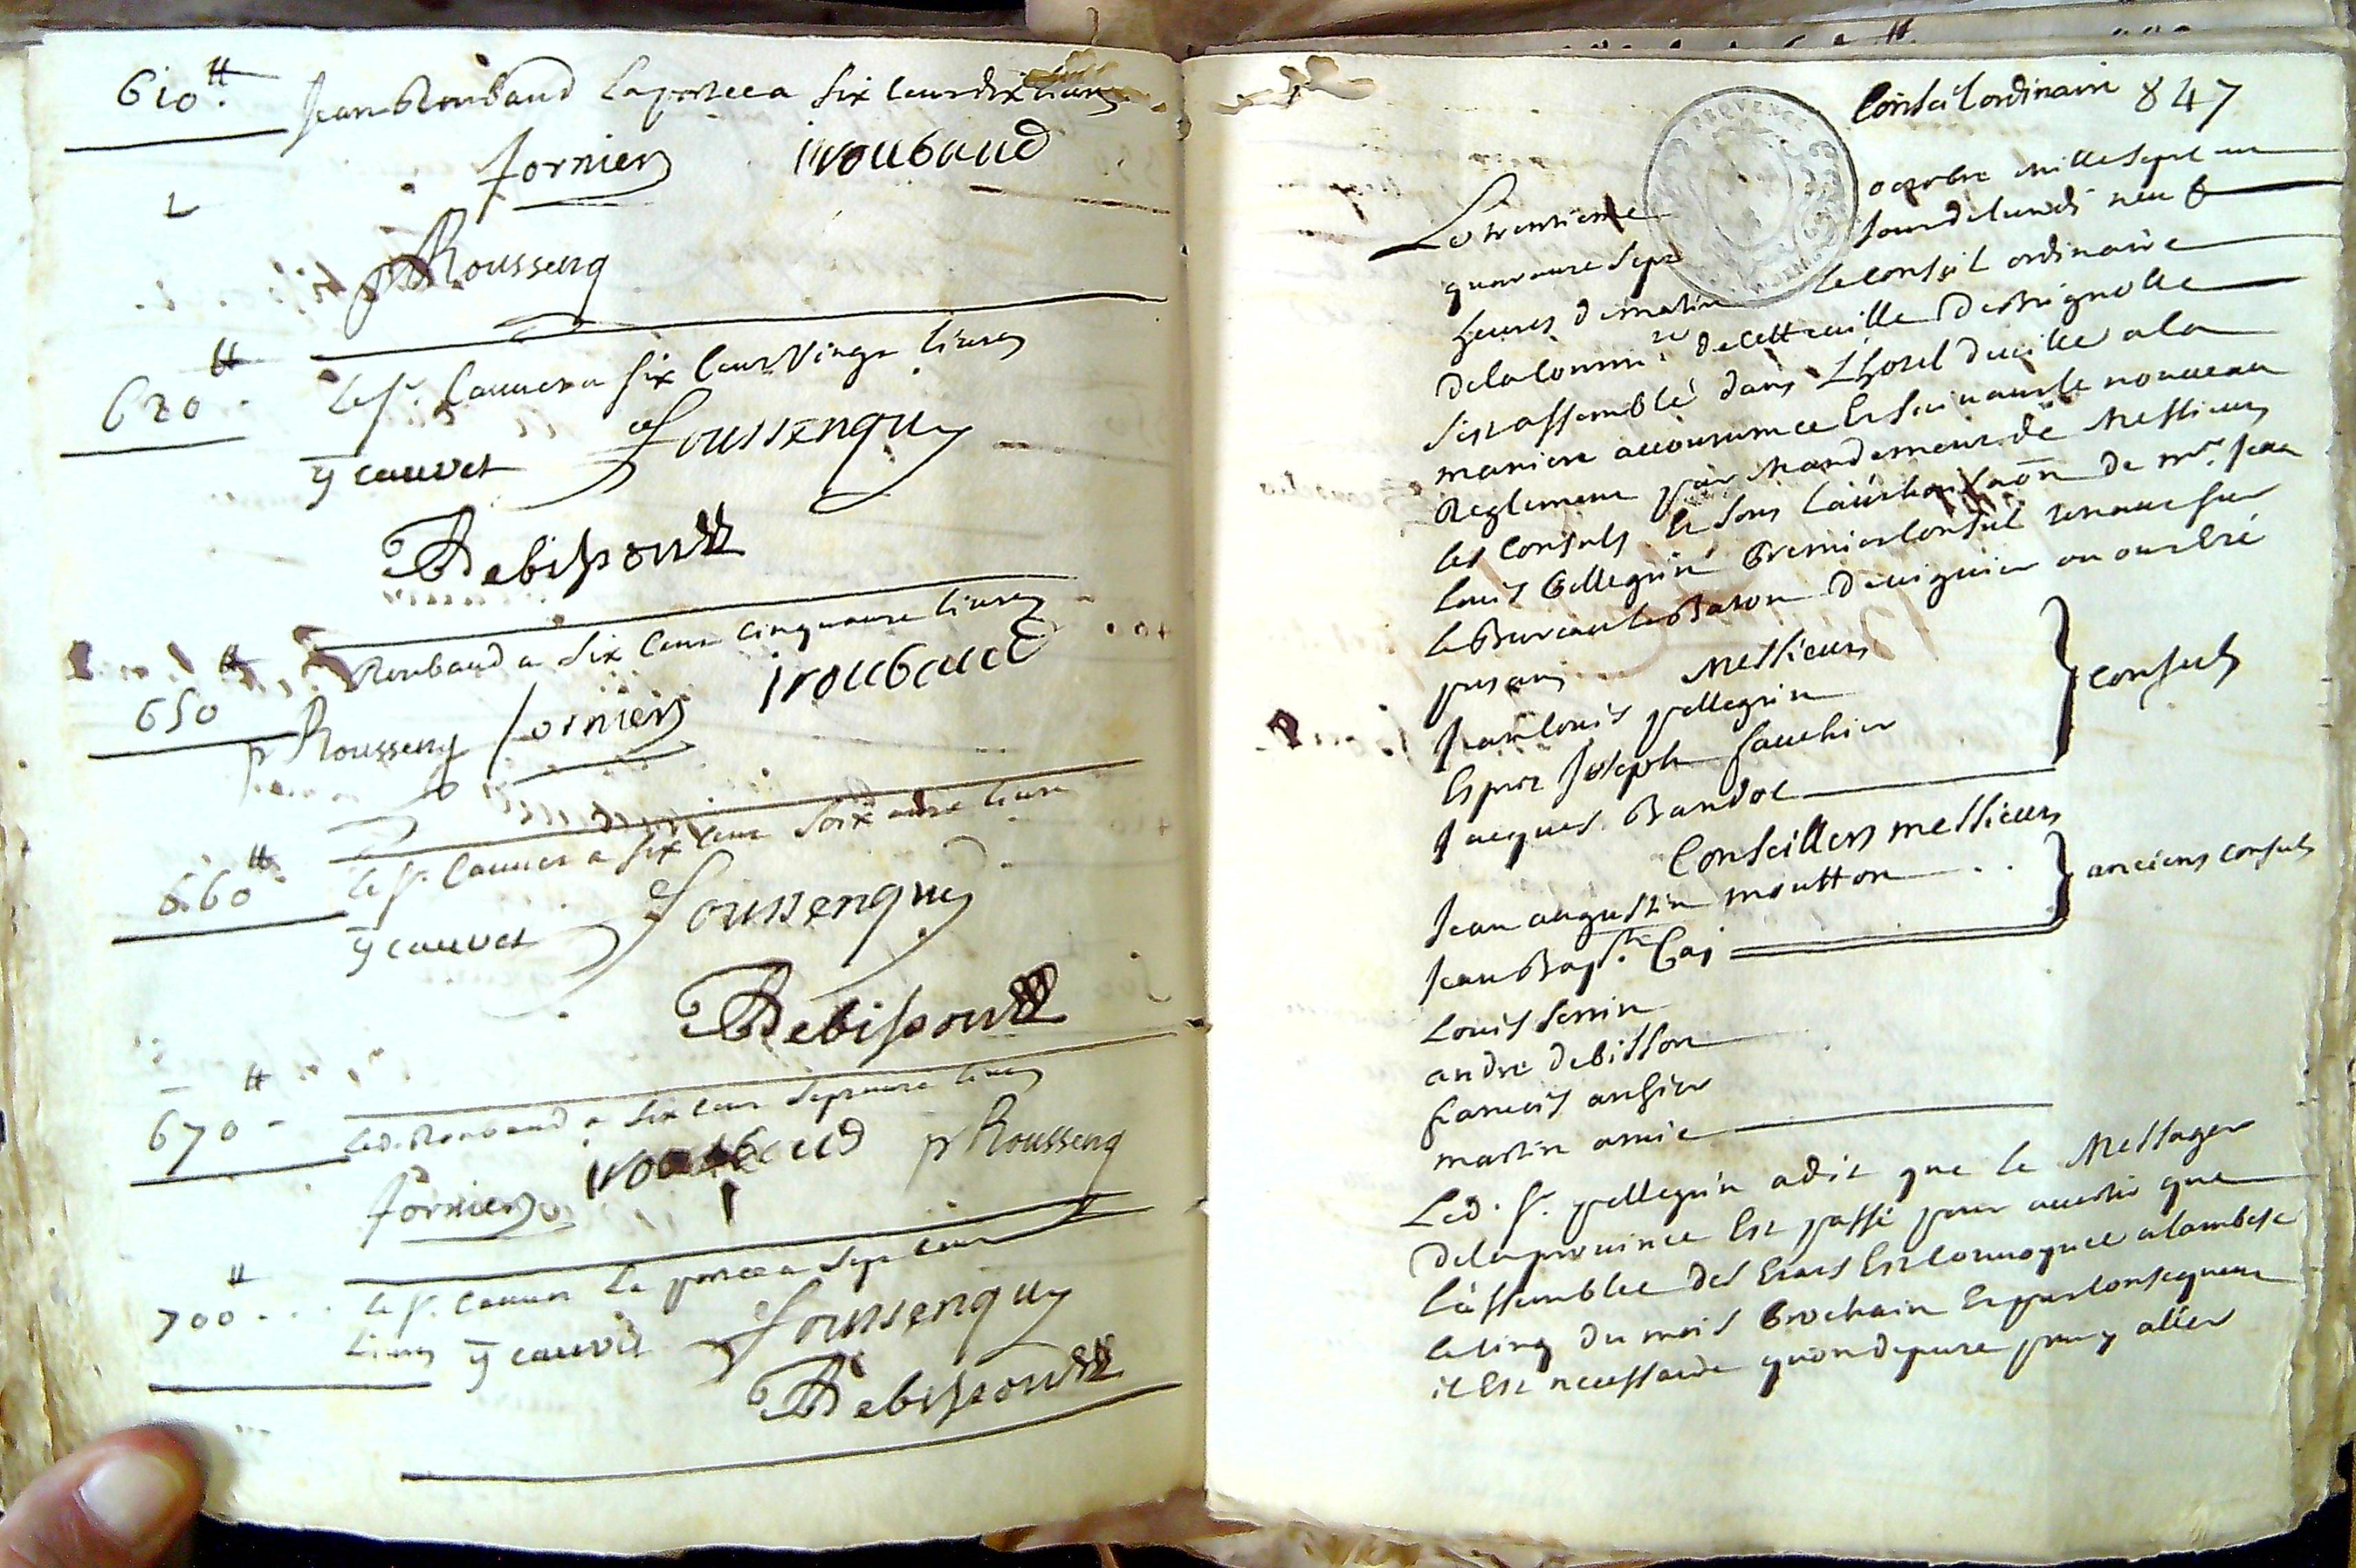 610 ₶. Jean Roubaud la portée a six cent dix livres
fornier jroubaud
p Rousseng
620 ₶. le sr. Cauvet a six cent vingt livres
y cauvet
Debisson
650 ₶ Roubaud a six cent cinquante livres
p Rousseng fornier jroubaud
660 ₶. le sr. Cauvet a six cent soixante livres
y cauvet
Debisson
670 ₶. led. Roubaud a six cent septante livres
fornier jroubaud p Rousseng
700 ₶. le sr. Cauvet la portée a sept cent
livres y cauvet
Debisson
Conseil ordinaire 847
Le trentieme octobre mille sept cent
quarante sept jour de lundi neuf
heures de matin le conseil ordinaire
de la commté de cette ville de Brignolle
sest assemblé dans Lhotel de ville a la
maniere accoutumée et suivant le nouveau
Reglement par Mandement de Messieurs
les Consuls et sous lauthorisaôn de mr. Jean
Louis Pellegrin Premier Consul tenant sur
le Bureau le Baton de viguier ou ont été
presans Messieurs
Jean louis pellegrin
Esprit Joseph fauchier
Jacques Bandol
} consuls
Conseillers messieurs
Jean augustin moutton
Jean Bapte. Caj
} anciens consuls
Louis serrin
andré debisson
francois
martin amic
Led. sr. pellegrin a dit que le Messager
de la province est passé pour avertir que
lassemblée des Etats est convoquée a lambesc
le cinq du mois Prochain et par consequent
il est necessaire quon depute pour y aller